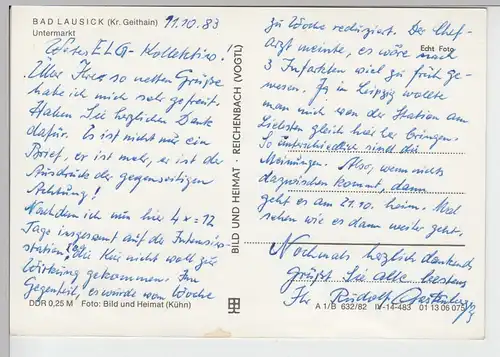 BAD LAUSICK (Kr. Geithain) 11.10.83
Untermarkt
Wertes ELG-Kollektiv!
Über Ihre so netten Grüße
habe ich mich sehr gefreut.
Haben Sie herzlichen Dank
dafür. Es ist nicht nur ein
Brief, er ist mehr, er ist der
Ausdruck der gegenseitigen
Achtung!
Nachdem ich nun hier 4 x = 12
Tage insgesamt auf der Intensiv-
station, die Kur nicht voll zur
Wirkung gekommen. Im
Gegenteil, es wurde von Woche
DDR 0,25 M Foto: Bild und Heimat (Kühn)
BILD UND HEIMAT · REICHENBACH (VOGTL)
zu Woche reduziert. Der Chef-
arzt meinte, es wäre nach
Echt Foto
3 Infarkten viel zu früh ge-
wesen. In Leipzig wollte
man mich von der Station am
Liebsten gleich hier her bringen.
So unterschiedlich sind die
Meinungen. Also, wenn nichts
dazwischen kommt, dann
geht es am 21.10. heim. Mal
sehen wie es dann weiter geht.
Nochmals herzlich dankend
grüßt Sie alle bestens
Ihr Rudolf
A 1/B 632/82 IV-14-483 01 13 06 075